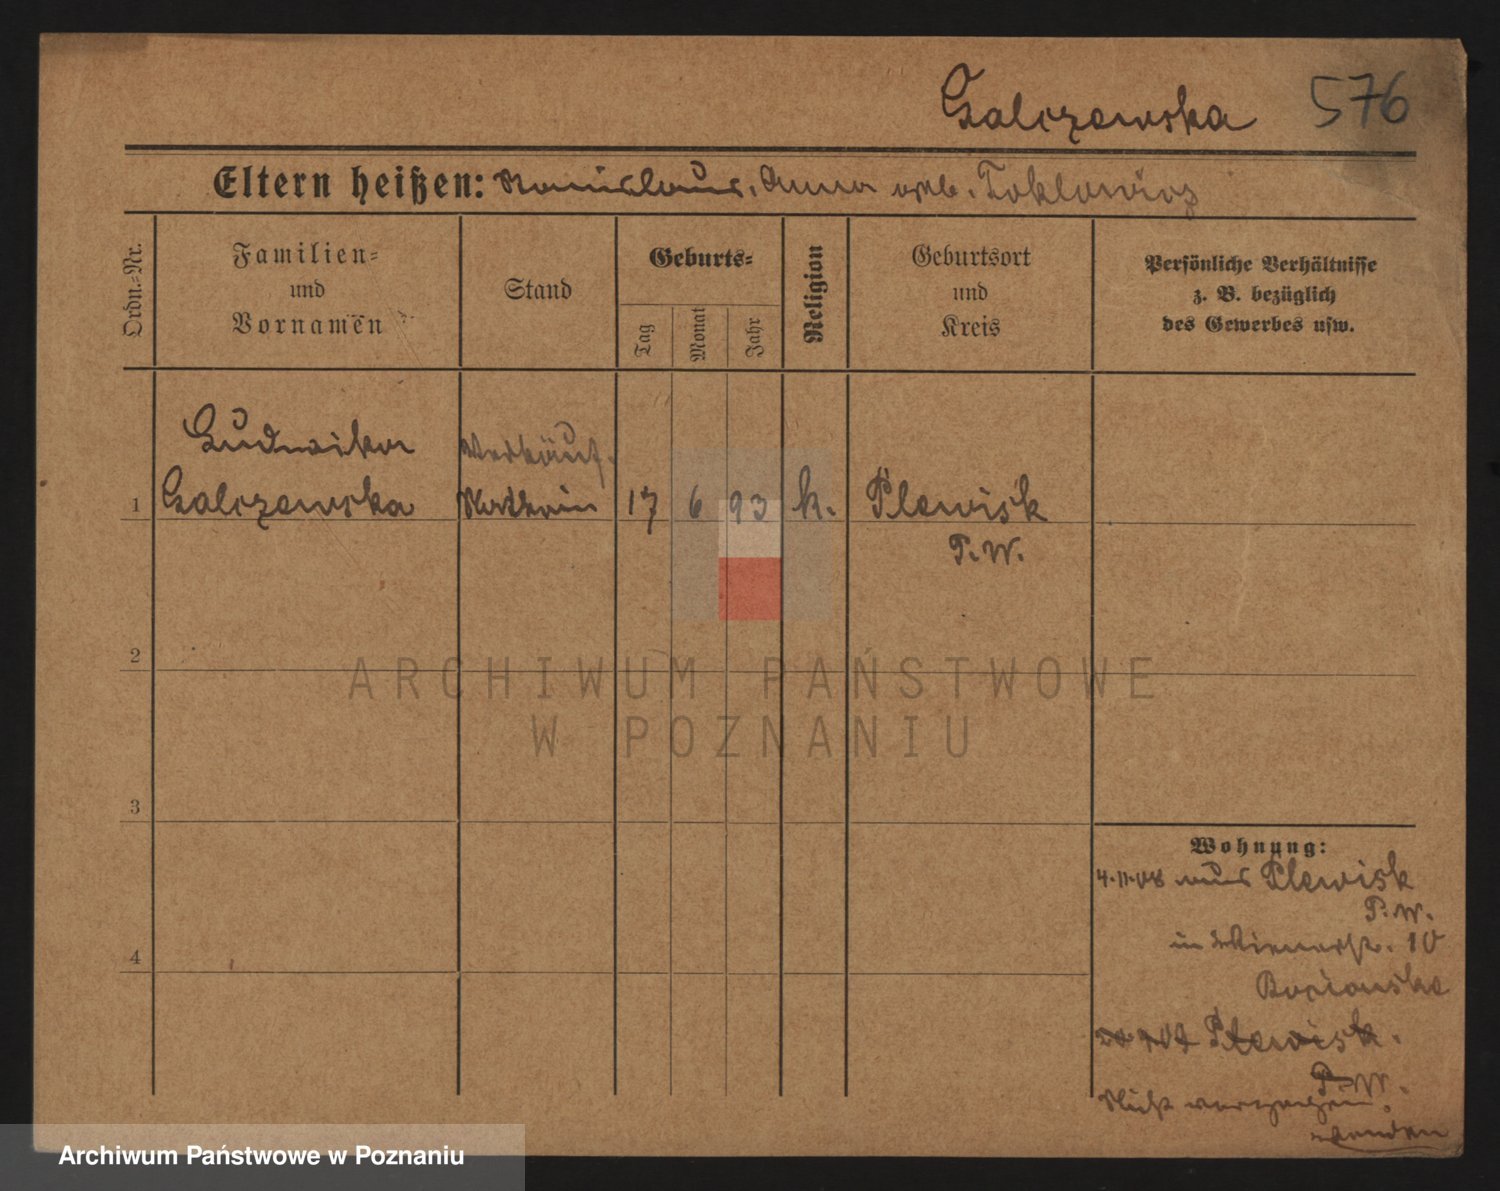 Galczewska 576
Eltern heißen: Stanislaus, Anna geb. Toklowicz
Ordn.=Nr.
Familien=
und
Vornamen
Stand
Geburts=
Tag
Monat
Jahr
Religion
Geburtsort
und
Kreis
Persönliche Verhältnisse
z. B. bezüglich
des Gewerbes usw.
Ludwika
Verkäuf.
1 Galczewska 17 6 93 k. Plewisk
P. W.
2
3
4
Wohnung:
4.11.08 aus Plewisk
P. W.
10
Plewisk.
P. W.
Nicht
wenden
ARCHIWUM PAŃSTWOWE
W POZNANIU
Archiwum Państwowe w Poznaniu